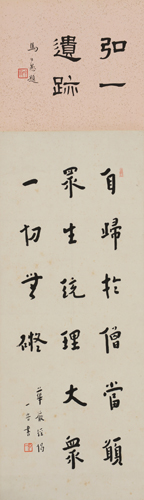 弘一
遺跡
馬一浮題
自歸於僧當願
眾生統理大眾
一切無礙
華嚴經偈
一音書